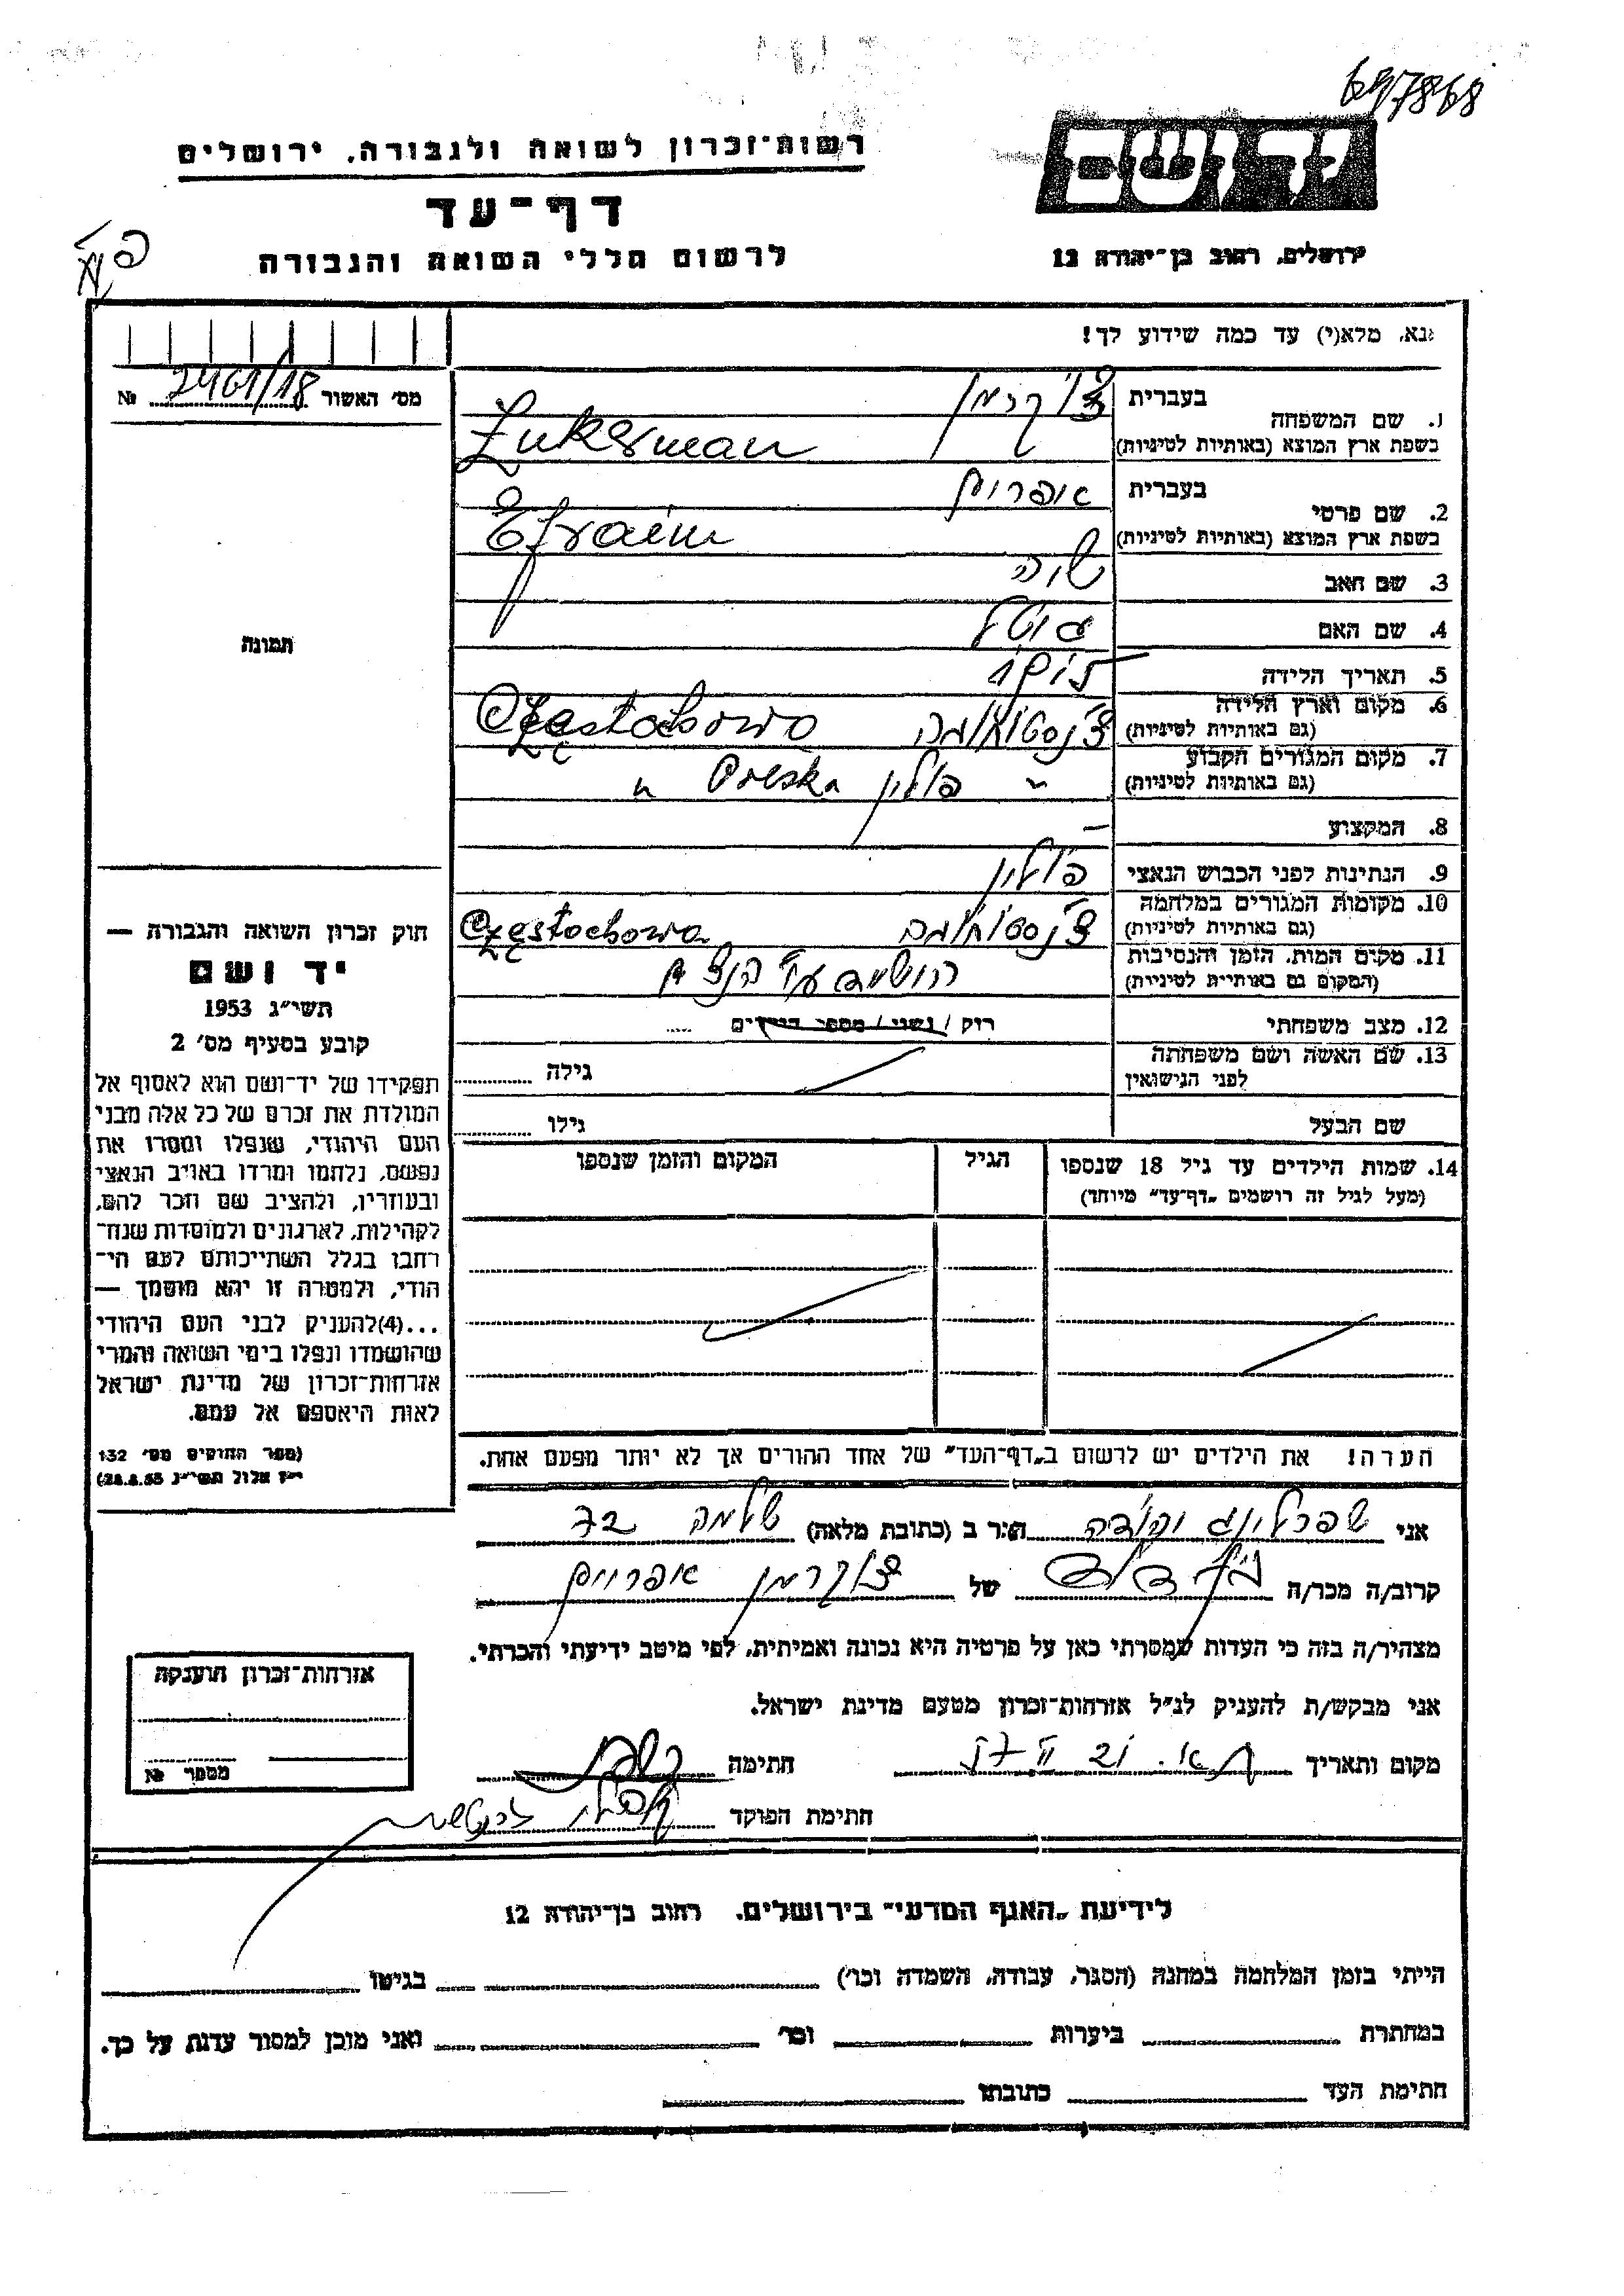 697868
רשות־זכרון לשואה ולגבורה, ירושלים
יד ושם
דף־עד
לרשום חללי השואה והגבורה
ירושלים, רחוב בן־יהודה 12
נא, מלא(י) עד כמה שידוע לך!
מס׳ האשור 2461/18 №
1. שם המשפחה בעברית צוקרמן
בשפת ארץ המוצא (באותיות לטיניות) Zukerman
2. שם פרטי בעברית אפרוים
בשפת ארץ המוצא (באותיות לטיניות) Efraim
3. שם האב
4. שם האם
5. תאריך הלידה
6. מקום וארץ הלידה צ׳נסטוחובה Częstochowa
(גם באותיות לטיניות)
7. מקום המגורים הקבוע " פולין Polska "
(גם באותיות לטיניות)
8. המקצוע –
9. הנתינות לפני הכבוש הנאצי פולין
10. מקומות המגורים במלחמה צ׳נסטוחובה Częstochowa
(גם באותיות לטיניות)
11. מקום המות, הזמן והנסיבות הושמד ע״י הנצים
(המקום גם באותיות לטיניות)
12. מצב משפחתי רוק / נשוי / מספר הילדים .....
13. שם האשה ושם משפחתה גילה
לפני הנישואין
שם הבעל גילו
תמונה
חוק זכרון השואה והגבורה —
יד ושם
תשי״ג 1953
קובע בסעיף מס׳ 2
תפקידו של יד־ושם הוא לאסוף אל
המולדת את זכרם של כל אלה מבני
העם היהודי, שנפלו ומסרו את
נפשם, נלחמו ומרדו באויב הנאצי
ובעוזריו, ולהציב שם וזכר להם,
לקהילות, לארגונים ולמוסדות שנח־
רחבו בגלל השתייכותם לעם הי־
הודי, ולמטרה זו יהא מוסמך —
...(4)להעניק לבני העם היהודי
שהושמדו ונפלו בימי השואה והמרי
אזרחות־זכרון של מדינת ישראל
לאות היאספם אל עמם.
(ספר החוקים מס׳ 132
י״ז אלול תשי״ג 28.8.53)
14. שמות הילדים עד גיל 18 שנספו הגיל המקום והזמן שנספו
(מעל לגיל זה רושמים „דף־עד״ מיוחד)
הערה! את הילדים יש לרשום ב„דף־העד״ של אחד ההורים אך לא יותר מפעם אחת.
אני הגר ב (כתובת מלאה) שלמה 72
קרוב/ה מכר/ה בן דוד של צוקרמן אפרוים
מצהיר/ה בזה כי העדות שמסרתי כאן על פרטיה היא נכונה ואמיתית, לפי מיטב ידיעתי והכרתי.
אני מבקש/ת להעניק לנ״ל אזרחות־זכרון מטעם מדינת ישראל.
מקום ותאריך ת״א. חתימה
חתימת הפוקד
אזרחות־זכרון הוענקה
מספר №
לידיעת „האגף המדעי״ בירושלים, רחוב בן־יהודה 12
הייתי בזמן המלחמה במחנה (הסגר, עבודה, השמדה וכו׳) בגיטו
במחתרת ביערות וכו׳ ואני מוכן למסור עדות על כך.
חתימת העד כתובתו